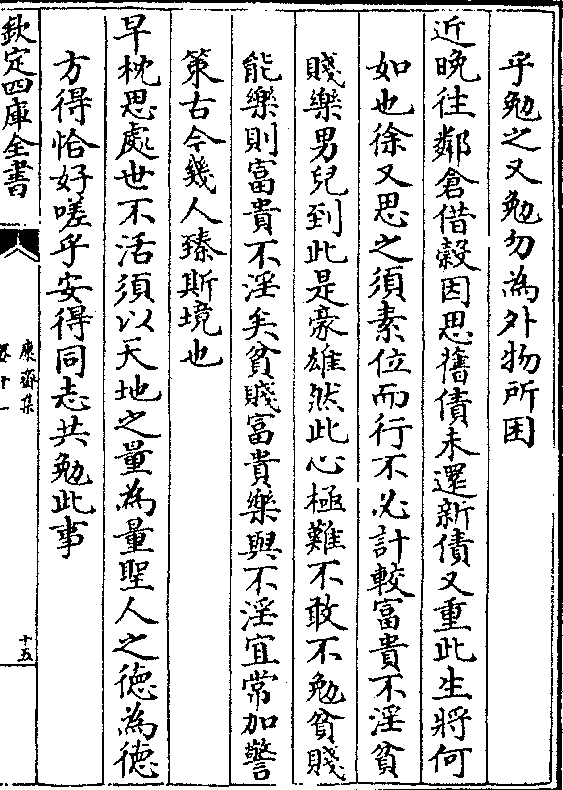 乎勉之又勉勿為外物所困
近晚往鄰倉借穀因思舊債未還新債又重此生將何
如也徐又思之須素位而行不必計較富貴不淫貧
賤樂男兒到此是豪雄然此心極難不敢不勉貧賤
能樂則富貴不淫矣貧賤富貴樂與不淫宜常加警
策古今幾人臻斯境也
早枕思處世不活須以天地之量為量聖人之德為德
方得恰好嗟乎安得同志共勉此事
欽定四庫全書
康齋集
卷十一
十五